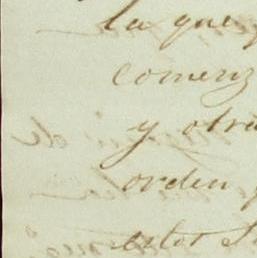 la que
comenz
y otra
orden
estos